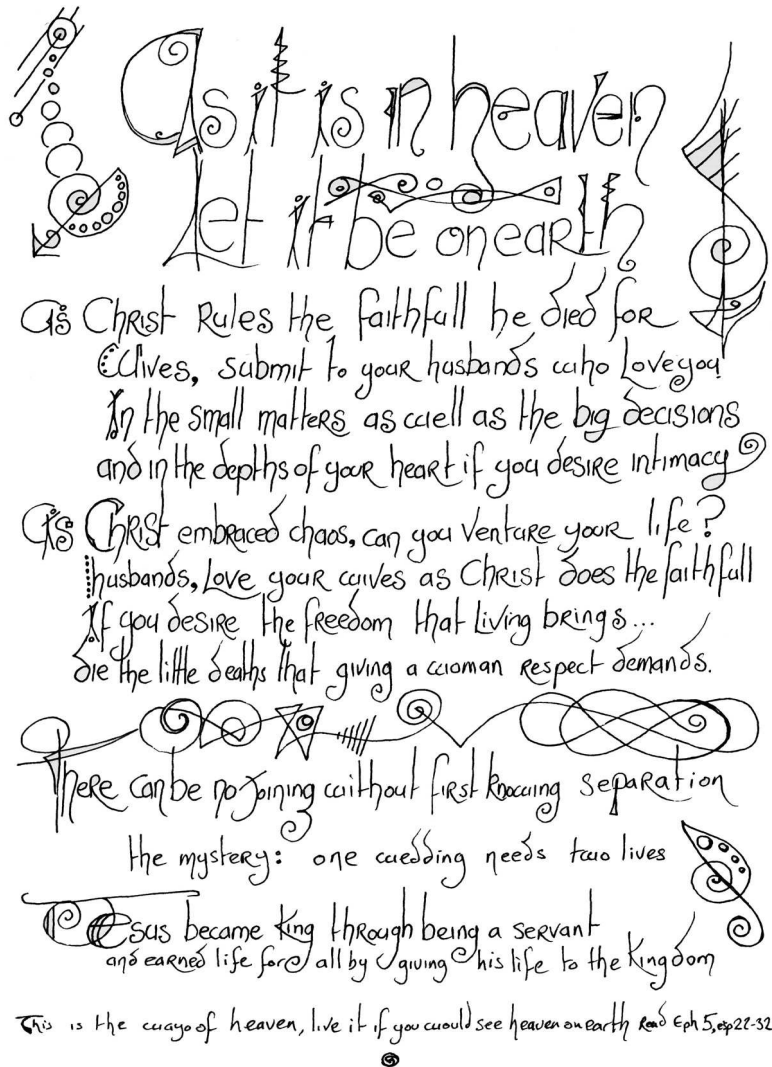 As it is in heaven
Let it be on earth
As Christ Rules the faithfull he died for
Wives, submit to your husbands who Love you!
In the small matters as well as the big decisions
and in the depths of your heart if you desire intimacy
As Christ embraced chaos, can you venture your life?
husbands, Love your wives as Christ does the faithfull
If you desire the freedom that Living brings...
die the little deaths that giving a woman respect demands.
There can be no joining without first knowing separation
the mystery: one wedding needs two lives
Jesus became King through being a servant
and earned life for all by giving his life to the Kingdom
This is the way of heaven, live it if you would see heaven on earth Read Eph 5, esp 22-32